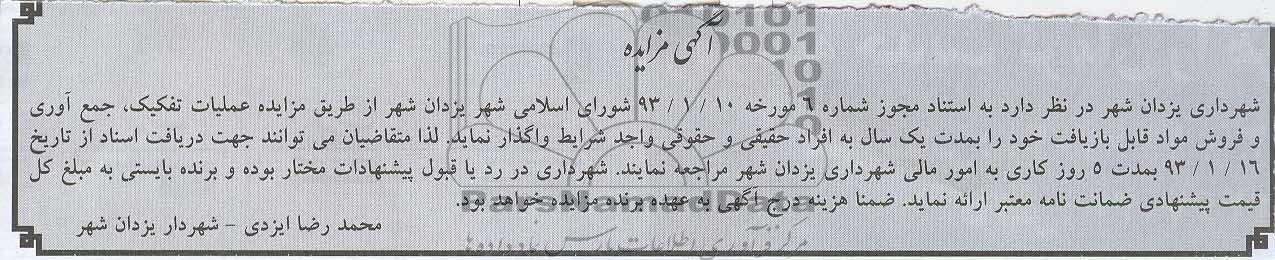 آگهی مزایده
شهرداری یزدان شهر در نظر دارد به استناد مجوز شماره ۶ مورخه ۱۰ / ۱ / ۹۳ شورای اسلامی شهر یزدان شهر از طریق مزایده عملیات تفکیک، جمع آوری
و فروش مواد قابل بازیافت خود را بمدت یک سال به افراد حقیقی و حقوقی واجد شرایط واگذار نماید. لذا متقاضیان می توانند جهت دریافت اسناد از تاریخ
۱۶ / ۱ / ۹۳ بمدت ۵ روز کاری به امور مالی شهرداری یزدان شهر مراجعه نمایند. شهرداری در رد یا قبول پیشنهادات مختار بوده و برنده بایستی به مبلغ کل
قیمت پیشنهادی ضمانت نامه معتبر ارائه نماید. ضمنا هزینه درج آگهی به عهده برنده مزایده خواهد بود.
محمد رضا ایزدی – شهردار یزدان شهر
ParsNamadData
مرکز فرآوری اطلاعات پارس نماد داده ها